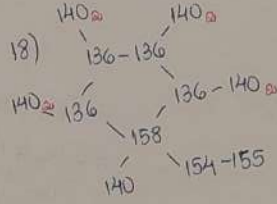 140 140
18) 136 - 136
140 136 136 - 140
158
140 154 - 155